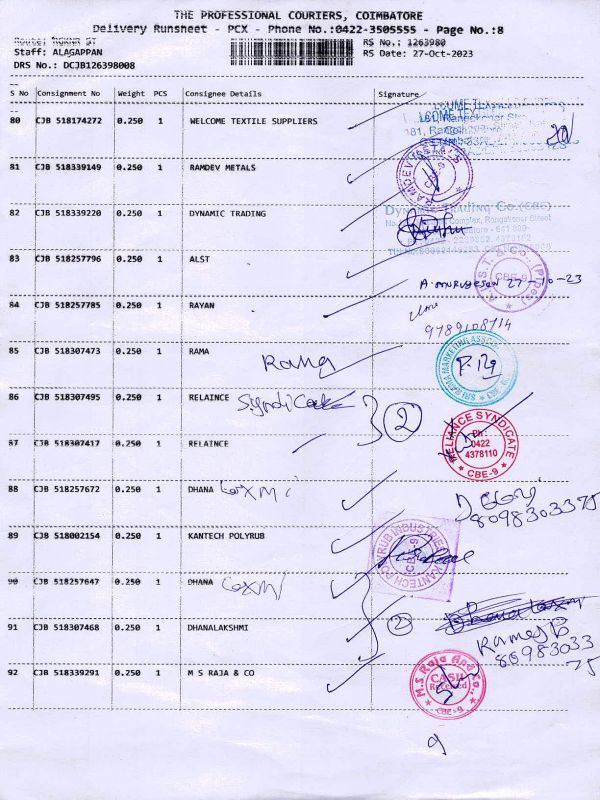 THE PROFESSIONAL COURIERS, COIMBATORE
Delivery Runsheet - PCX - Phone No.:0422-3505555 - Page No.:8
Staff: ALAGAPPAN
RS No.: 1263980
DRS No.: DCJB126398008
RS Date: 27-Oct-2023
S No Consignment No Weight PCS Consignee Details Signature
80 CJB 518174272 0.250 1 WELCOME TEXTILE SUPPLIERS
81 CJB 518339149 0.250 1 RAMDEV METALS
RAMDEV METALS CBE-9
82 CJB 518339220 0.250 1 DYNAMIC TRADING
Dynamic Trading Co.(CBE)
83 CJB 518257796 0.250 1 ALST
CBE-9
27-10-23
84 CJB 518257785 0.250 1 RAYAN
9789108714
85 CJB 518307473 0.250 1 RAMA
Rama
SRI RAMA MARKETING
86 CJB 518307495 0.250 1 RELAINCE Syndicate
2
RELIANCE SYNDICATE
Ph:
0422
4378110
CBE-9
87 CJB 518307417 0.250 1 RELAINCE
88 CJB 518257672 0.250 1 DHANA Laxmi
8098303375
89 CJB 518002154 0.250 1 KANTECH POLYRUB
KANTECH POLYRUB INDUSTRIES CBE-9
90 CJB 518257647 0.250 1 DHANA Laxmi
91 CJB 518307468 0.250 1 DHANALAKSHMI
2
Ramesh
80983033
75
92 CJB 518339291 0.250 1 M S RAJA & CO
M.S. Raja And Co.,
CASH
Received
CBE-9
9